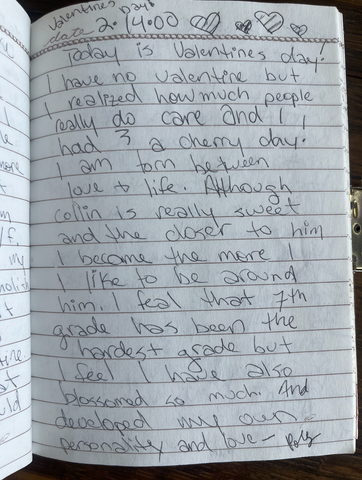 Valentines Day!
date 2.14.00
Today is Valentines day!
I have no valentine but
I realized how much people
really do care and I
had 3 a cherry day!
I am torn between
love & life. Although
collin is really sweet
and the closer to him
I become the more I
I like to be around
him. I feal that 7th
grade has been the
hardest grade but
I feel I have also
blossomed so much. And
developed my own
personality and love—